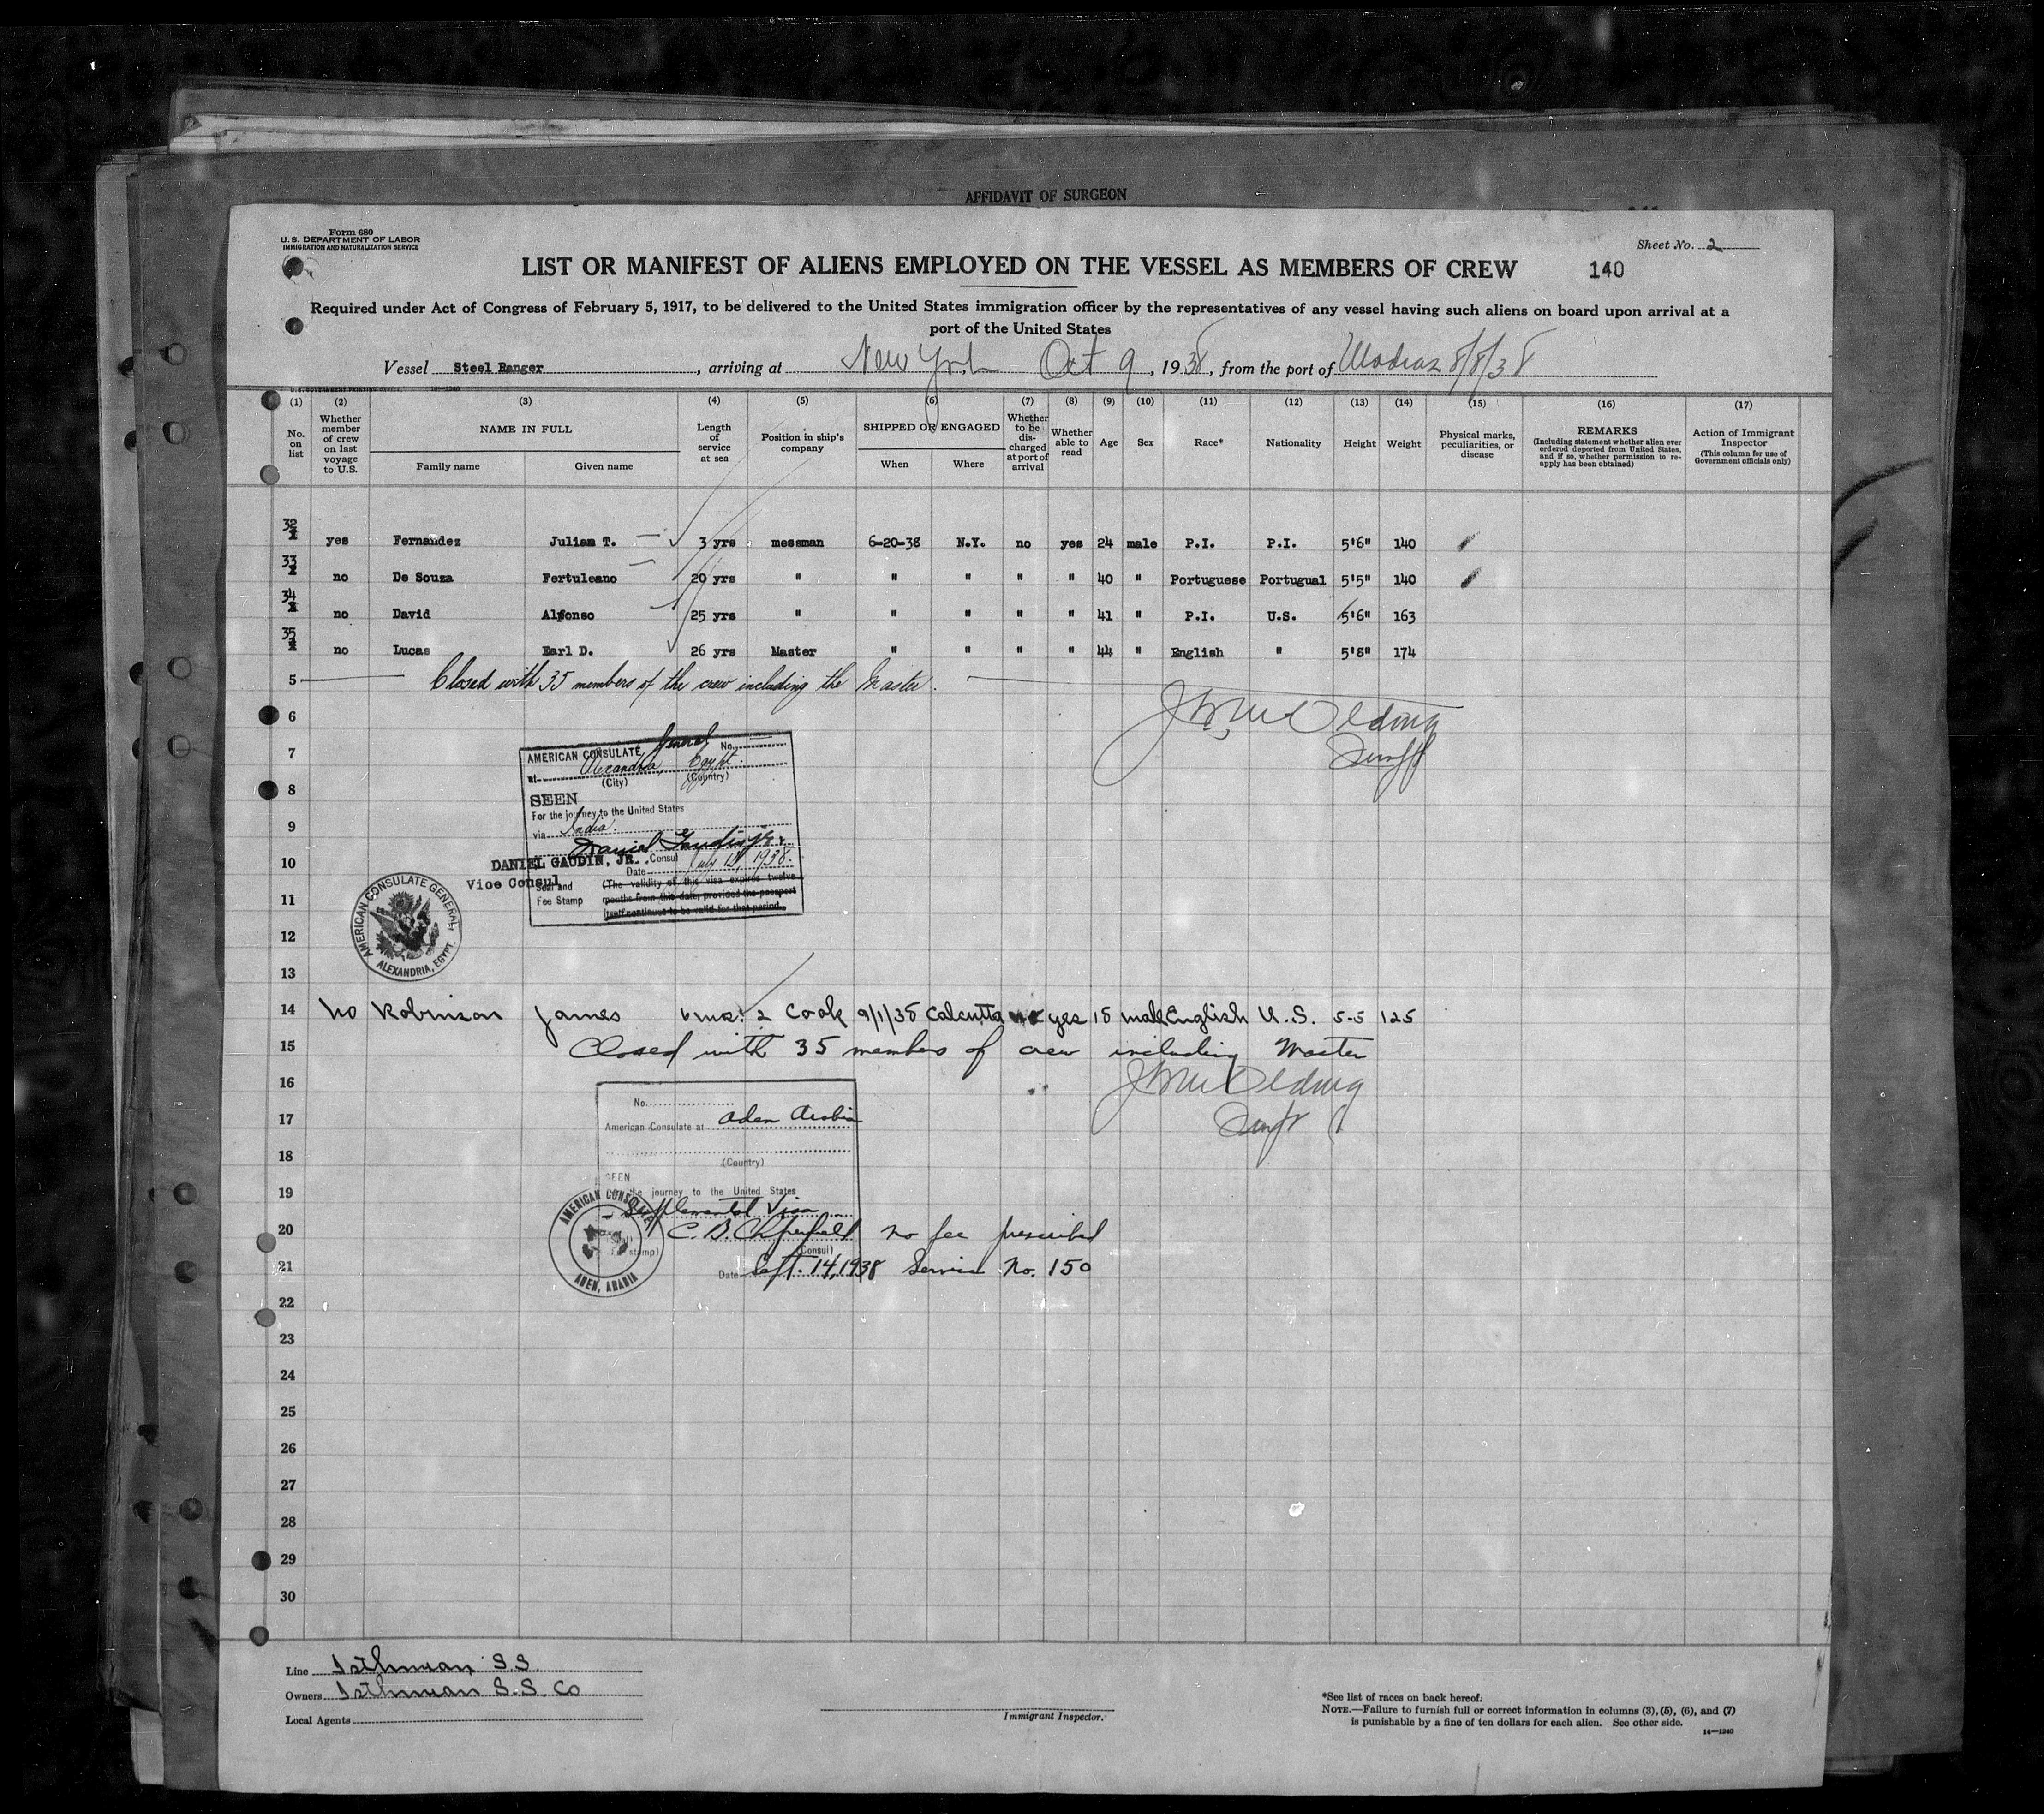 AFFIDAVIT OF SURGEON
Form 680
U.S. DEPARTMENT OF LABOR
IMMIGRATION AND NATURALIZATION SERVICE
Sheet No. 2
LIST OR MANIFEST OF ALIENS EMPLOYED ON THE VESSEL AS MEMBERS OF CREW 140
Required under Act of Congress of February 5, 1917, to be delivered to the United States immigration officer by the representatives of any vessel having such aliens on board upon arrival at a
port of the United States
Vessel Steel Ranger, arriving at New York Oct 9, 1938, from the port of Madras 8/8/38
U.S. GOVERNMENT PRINTING OFFICE
(1) (2) (3) (4) (5) (6) (7) (8) (9) (10) (11) (12) (13) (14) (15) (16) (17)
No. on list
Whether member of crew on last voyage to U.S.
NAME IN FULL
Family name
Given name
Length of service at sea
Position in ship's company
SHIPPED OR ENGAGED
When
Where
Whether to be discharged at port of arrival
Whether able to read
Age
Sex
Race*
Nationality
Height
Weight
Physical marks, peculiarities, or disease
REMARKS
(Including statement whether alien ever ordered deported from United States, and if so, whether permission to reapply has been obtained)
Action of Immigrant Inspector
(This column for use of Government officials only)
32 yes Fernandez Julian T. 3 yrs messman 6-20-38 N.Y. no yes 24 male P.I. P.I. 5'6" 140
33 no De Souza Fertuleano 20 yrs " " " " " 40 " Portuguese Portugual 5'5" 140
34 no David Alfonso 25 yrs " " " " " 41 " P.I. U.S. 5'6" 163
35 no Lucas Earl D. 26 yrs Master " " " " 44 " English " 5'8" 174
5 Closed with 35 members of the crew including the Master.
6
7
8
9
10
11
12
13
AMERICAN CONSULATE General No.
at Alexandria, Egypt
(City) (Country)
SEEN
For the journey to the United States
via India
Daniel Gaudin Jr.
DANIEL GAUDIN, JR. Consul
Vice Consul
Date 1938.
Seal and
Fee Stamp
(The validity of this visa expires twelve
months from this date, provided the passport
itself continues to be valid for that period.
AMERICAN CONSULATE GENERAL
ALEXANDRIA, EGYPT.
14 no Robinson James 2 Cook 9/1/38 Calcutta yes 18 male English U.S. 5-5 125
15 Closed with 35 members of crew including Master
16
17
18
19
20
21
No.
American Consulate at Aden Arabia
(Country)
SEEN
the journey to the United States
Supplemental Visa
no fee prescribed
(Consul)
Date Sept. 14, 1938 Service No. 150
AMERICAN CONSULATE
ADEN, ARABIA
22
23
24
25
26
27
28
29
30
Line Isthmian S.S.
Owners Isthmian S.S. Co
Local Agents
Immigrant Inspector.
*See list of races on back hereof.
NOTE.—Failure to furnish full or correct information in columns (3), (5), (6), and (7)
is punishable by a fine of ten dollars for each alien. See other side.
14—1240